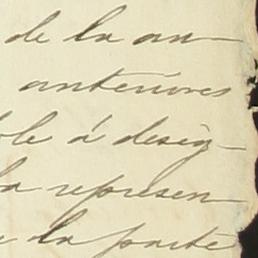 de la an-
anteriores
ble á desig-
la represen
e la parte